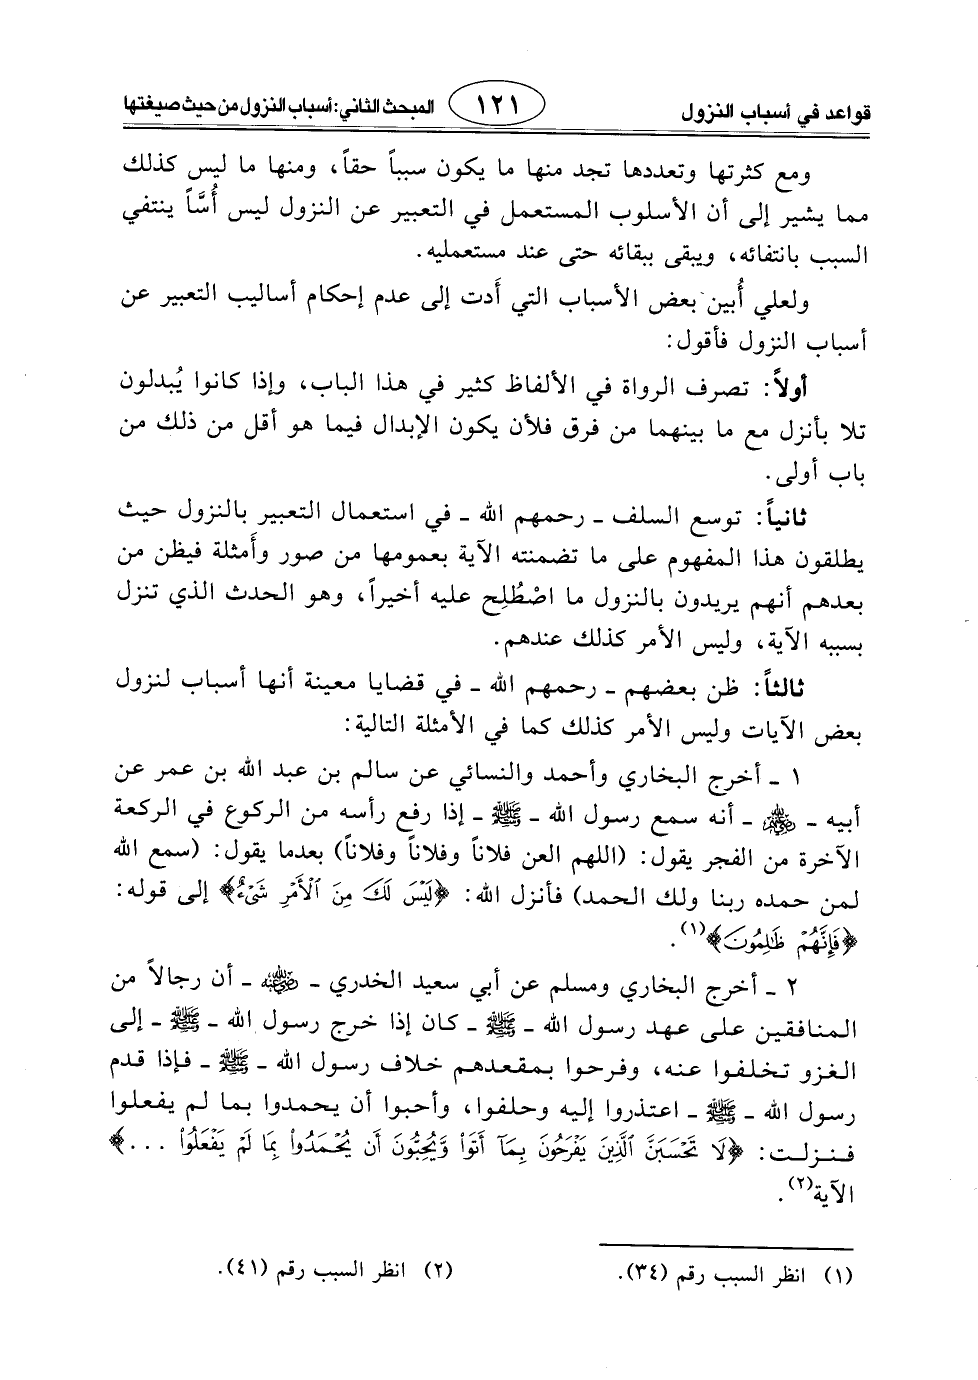 قواعد في أسباب النزول ١٢١ المبحث الثاني: أسباب النزول من حيث صيغتها
ومع كثرتها وتعددها تجد منها ما يكون سبباً حقاً، ومنها ما ليس كذلك
مما يشير إلى أن الأسلوب المستعمل في التعبير عن النزول ليس أُسَّاً ينتفي
السبب بانتفائه، ويبقى ببقائه حتى عند مستعمليه.
ولعلي أُبين بعض الأسباب التي أَدت إلى عدم إحكام أساليب التعبير عن
أسباب النزول فأقول:
أولاً: تصرف الرواة في الألفاظ كثير في هذا الباب، وإذا كانوا يُبدلون
تلا بأنزل مع ما بينهما من فرق فلأن يكون الإبدال فيما هو أقل من ذلك من
باب أولى.
ثانياً: توسع السلف ـ رحمهم الله ـ في استعمال التعبير بالنزول حيث
يطلقون هذا المفهوم على ما تضمنته الآية بعمومها من صور وأمثلة فيظن من
بعدهم أنهم يريدون بالنزول ما اصْطُلِح عليه أخيراً، وهو الحدث الذي تنزل
بسببه الآية، وليس الأمر كذلك عندهم.
ثالثاً: ظن بعضهم ـ رحمهم الله ـ في قضايا معينة أنها أسباب لنزول
بعض الآيات وليس الأمر كذلك كما في الأمثلة التالية:
١ ـ أخرج البخاري وأحمد والنسائي عن سالم بن عبد الله بن عمر عن
أبيه ـ رضي الله عنه ـ أنه سمع رسول الله ـ ﷺ ـ إذا رفع رأسه من الركوع في الركعة
الآخرة من الفجر يقول: (اللهم العن فلاناً وفلاناً وفلاناً) بعدما يقول: (سمع الله
لمن حمده ربنا ولك الحمد) فأنزل الله: ﴿لَيْسَ لَكَ مِنَ ٱلْأَمْرِ شَىْءٌ﴾ إلى قوله:
﴿فَإِنَّهُمْ ظَٰلِمُونَ﴾(١).
٢ ـ أخرج البخاري ومسلم عن أبي سعيد الخدري ـ رضي الله عنه ـ أن رجالاً من
المنافقين على عهد رسول الله ـ ﷺ ـ كان إذا خرج رسول الله ـ ﷺ ـ إلى
الغزو تخلفوا عنه، وفرحوا بمقعدهم خلاف رسول الله ـ ﷺ ـ فإذا قدم
رسول الله ـ ﷺ ـ اعتذروا إليه وحلفوا، وأحبوا أن يحمدوا بما لم يفعلوا
فنزلت: ﴿لَا تَحْسَبَنَّ ٱلَّذِينَ يَفْرَحُونَ بِمَآ أَتَوا۟ وَّيُحِبُّونَ أَن يُحْمَدُوا۟ بِمَا لَمْ يَفْعَلُوا۟ ...﴾
الآية(٢).
(١) انظر السبب رقم (٣٤). (٢) انظر السبب رقم (٤١).